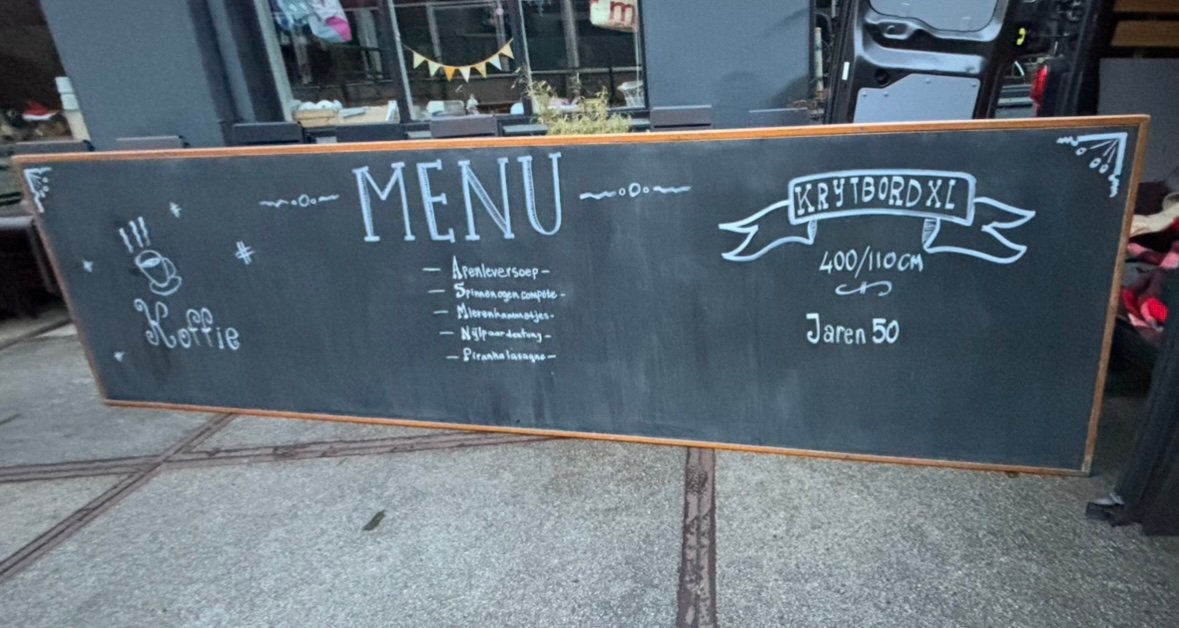 m
MENU
- Apenleversoep -
- Spinnenogen compote -
- Mierenhammetjes -
- Nijlpaardentong -
- Piranha lasagne -
Koffie
KRYTBORD XL
400/110 CM
Jaren 50